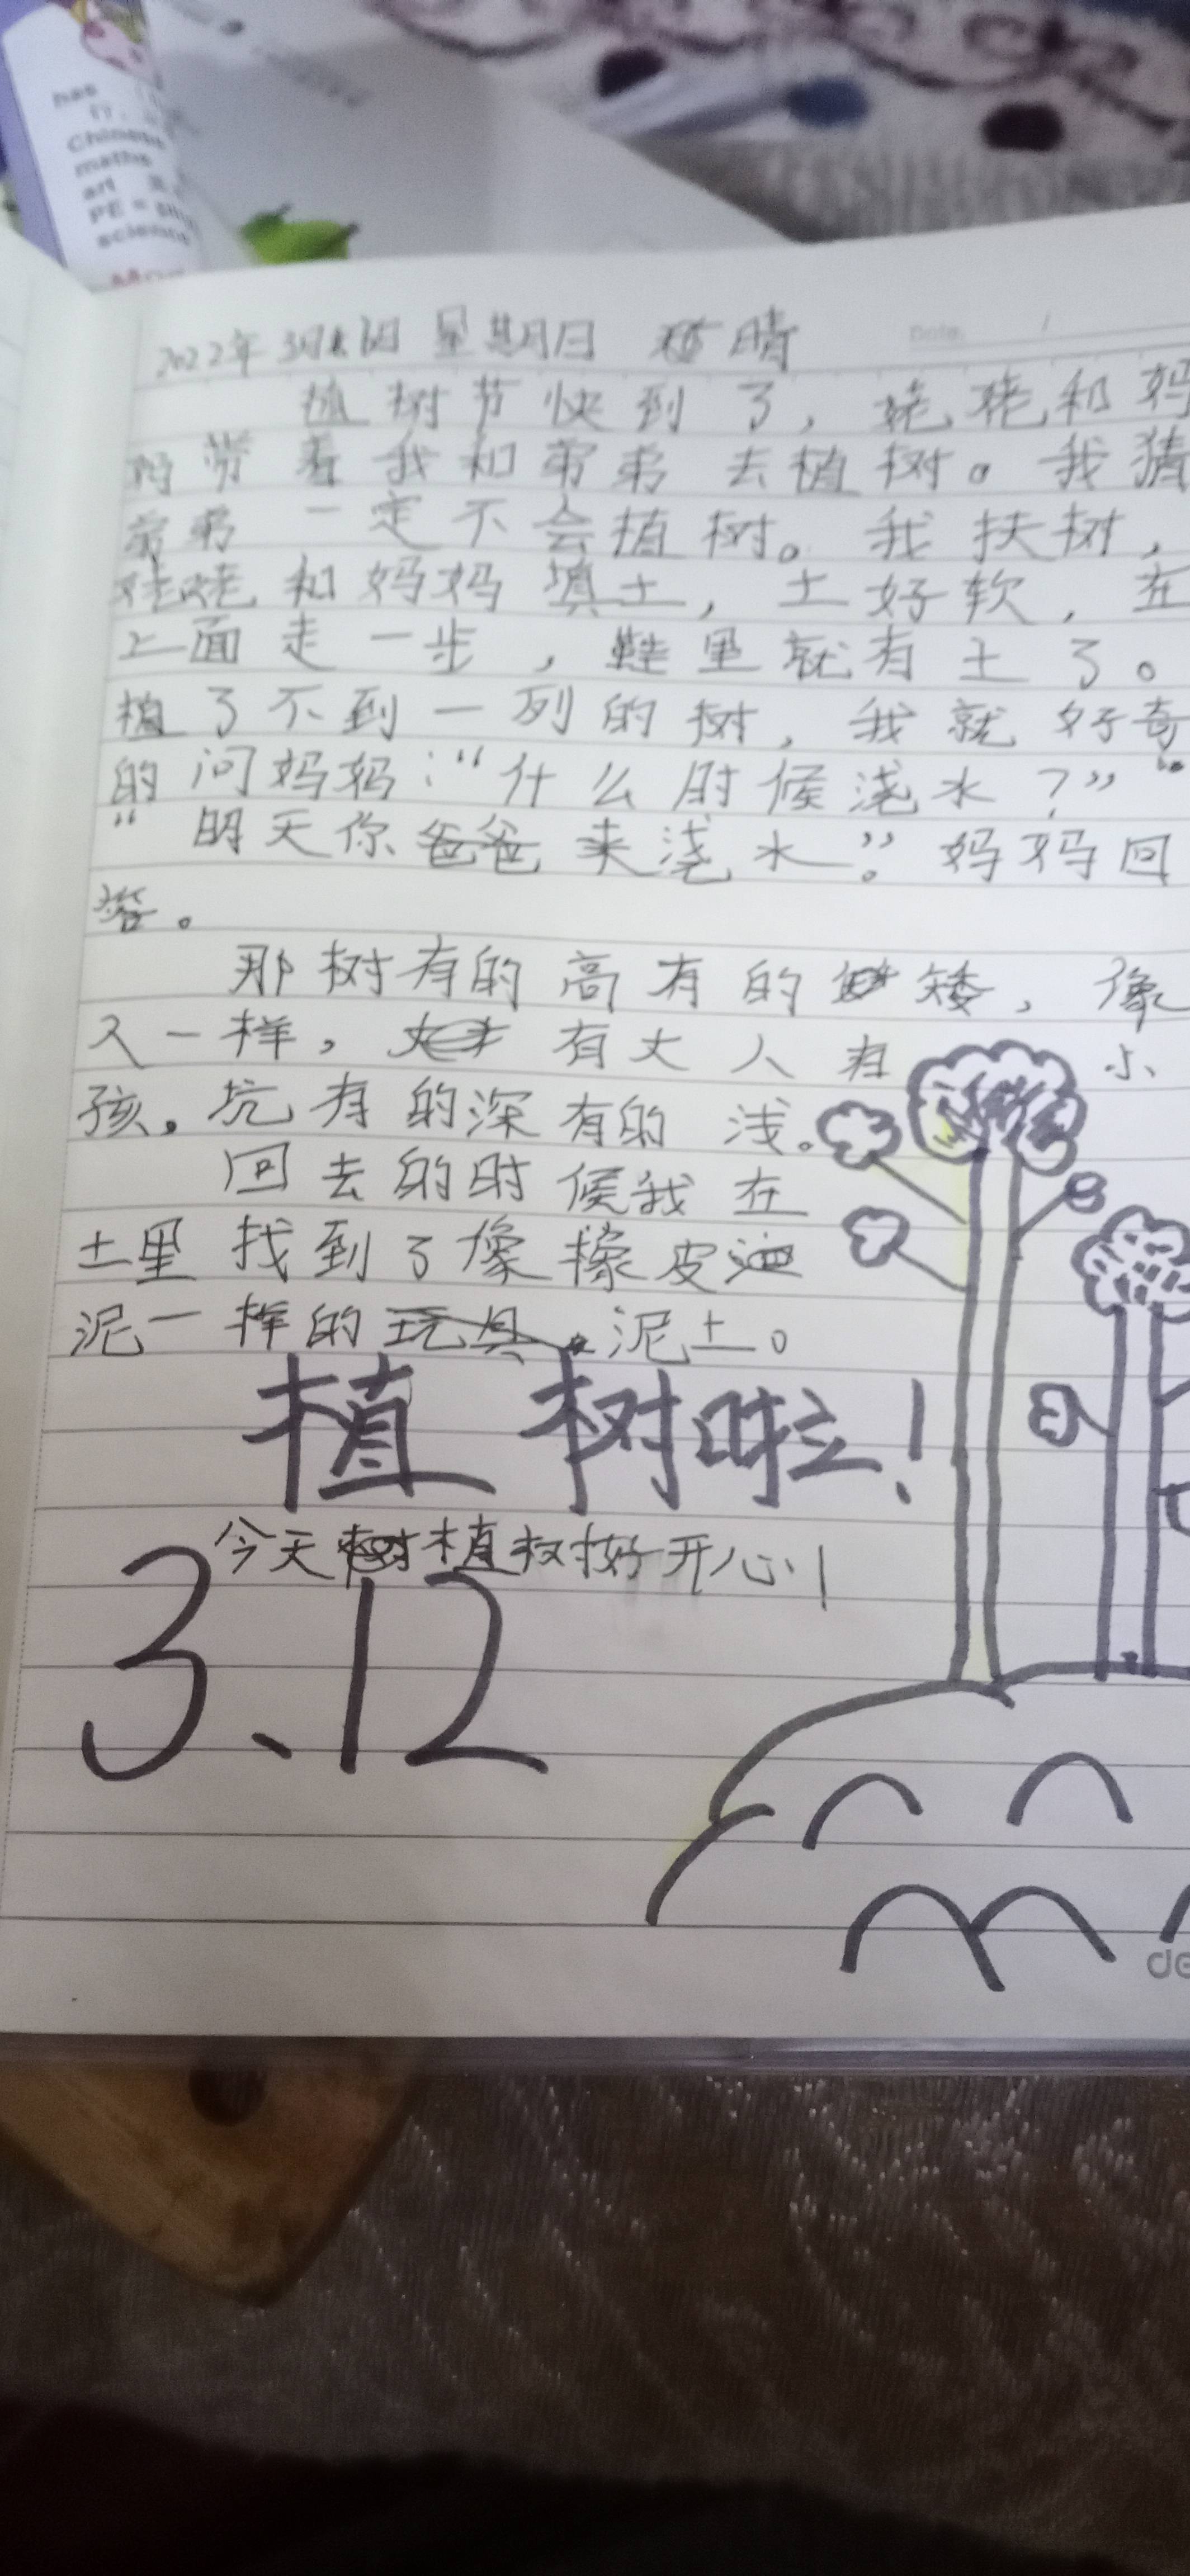 has
Chinese
maths
art
PE
science
Date
2022年3月6日 星期日 晴
植树节快到了，姥姥和妈
妈带着我和弟弟去植树。我猜
弟弟一定不会植树。我扶树，
姥姥和妈妈填土，土好软，在
上面走一步，鞋里就有土了。
植了不到一列的树，我就好奇
的问妈妈：“什么时候浇水？”
“明天你爸爸来浇水”。妈妈回
答。
那树有的高有的矮，像
人一样，有大人有小
孩。坑有的深有的浅。
回去的时候我在
土里找到了像橡皮
泥一样的泥土。
植树啦！
今天植树好开心！
3、12
de